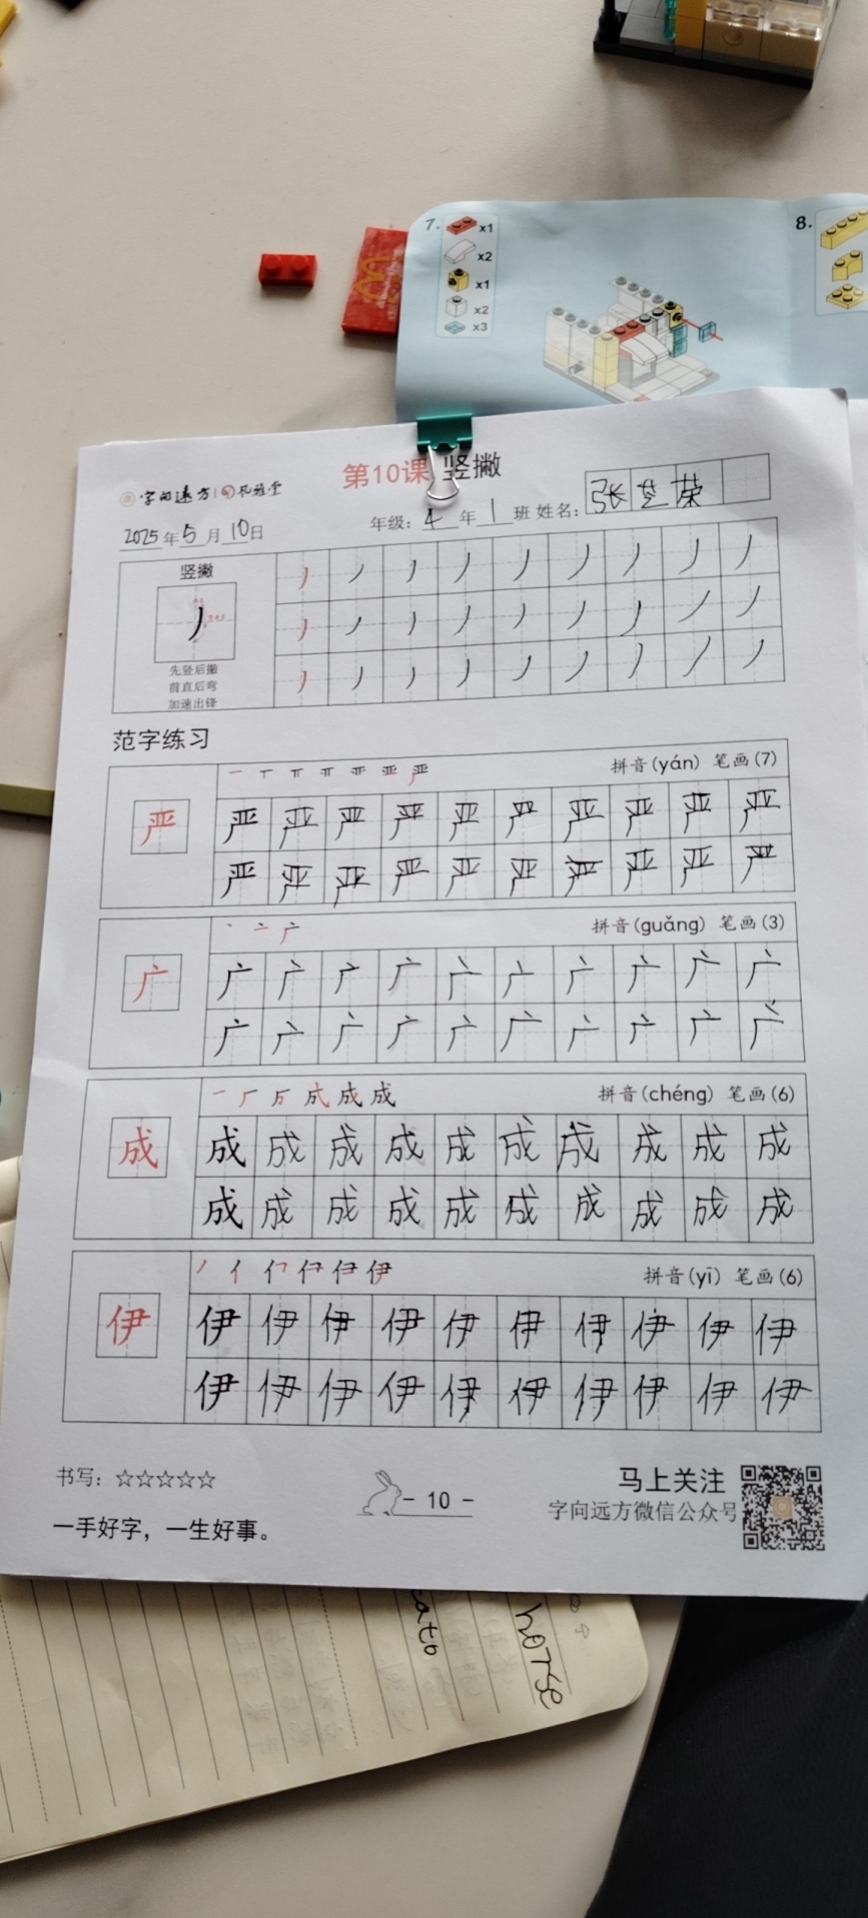 7.
x1
x2
x1
x2
x3
8.
第10课 竖撇
字向远方
2025年5月10日
年级：4年1班 姓名：张芝荣
竖撇
先竖后撇
前直后弯
加速出锋
范字练习
一 丅 严 拼音(yán) 笔画(7)
严 严 严 严 严 严 严 严 严 严 严
严 严 严 严 严 严 严 严 严 严
丶 亠 广 拼音(guǎng) 笔画(3)
广 广 广 广 广 广 广 广 广 广 广
广 广 广 广 广 广 广 广 广 广
一 厂 成 成 拼音(chéng) 笔画(6)
成 成 成 成 成 成 成 成 成 成 成
成 成 成 成 成 成 成 成 成 成
丿 亻 伊 拼音(yī) 笔画(6)
伊 伊 伊 伊 伊 伊 伊 伊 伊 伊 伊
伊 伊 伊 伊 伊 伊 伊 伊 伊 伊
书写：☆☆☆☆☆
一手好字，一生好事。
- 10 -
马上关注
字向远方微信公众号
horse